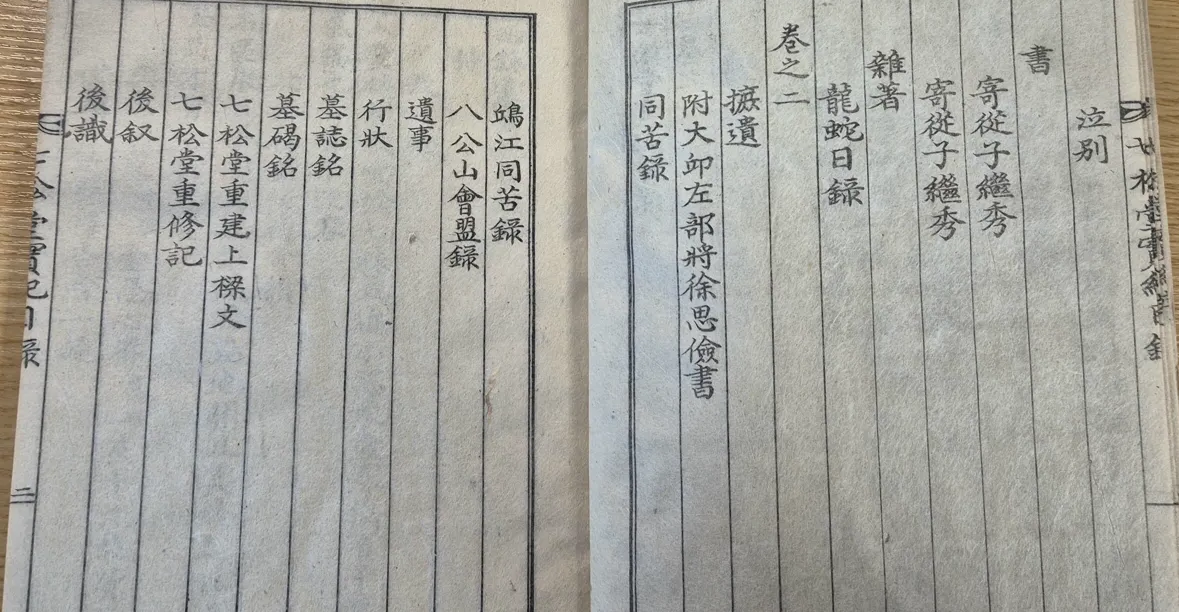 泣別
書
寄從子繼秀
寄從子繼秀
雜著
龍蛇日錄
卷之二
摭遺
附大邱左部將徐思儉書
同苦錄
鴻江同苦錄
八公山會盟錄
遺事
行狀
墓誌銘
墓碣銘
七松堂重建上樑文
七松堂重修記
後叙
後識
七松堂實紀目錄
二